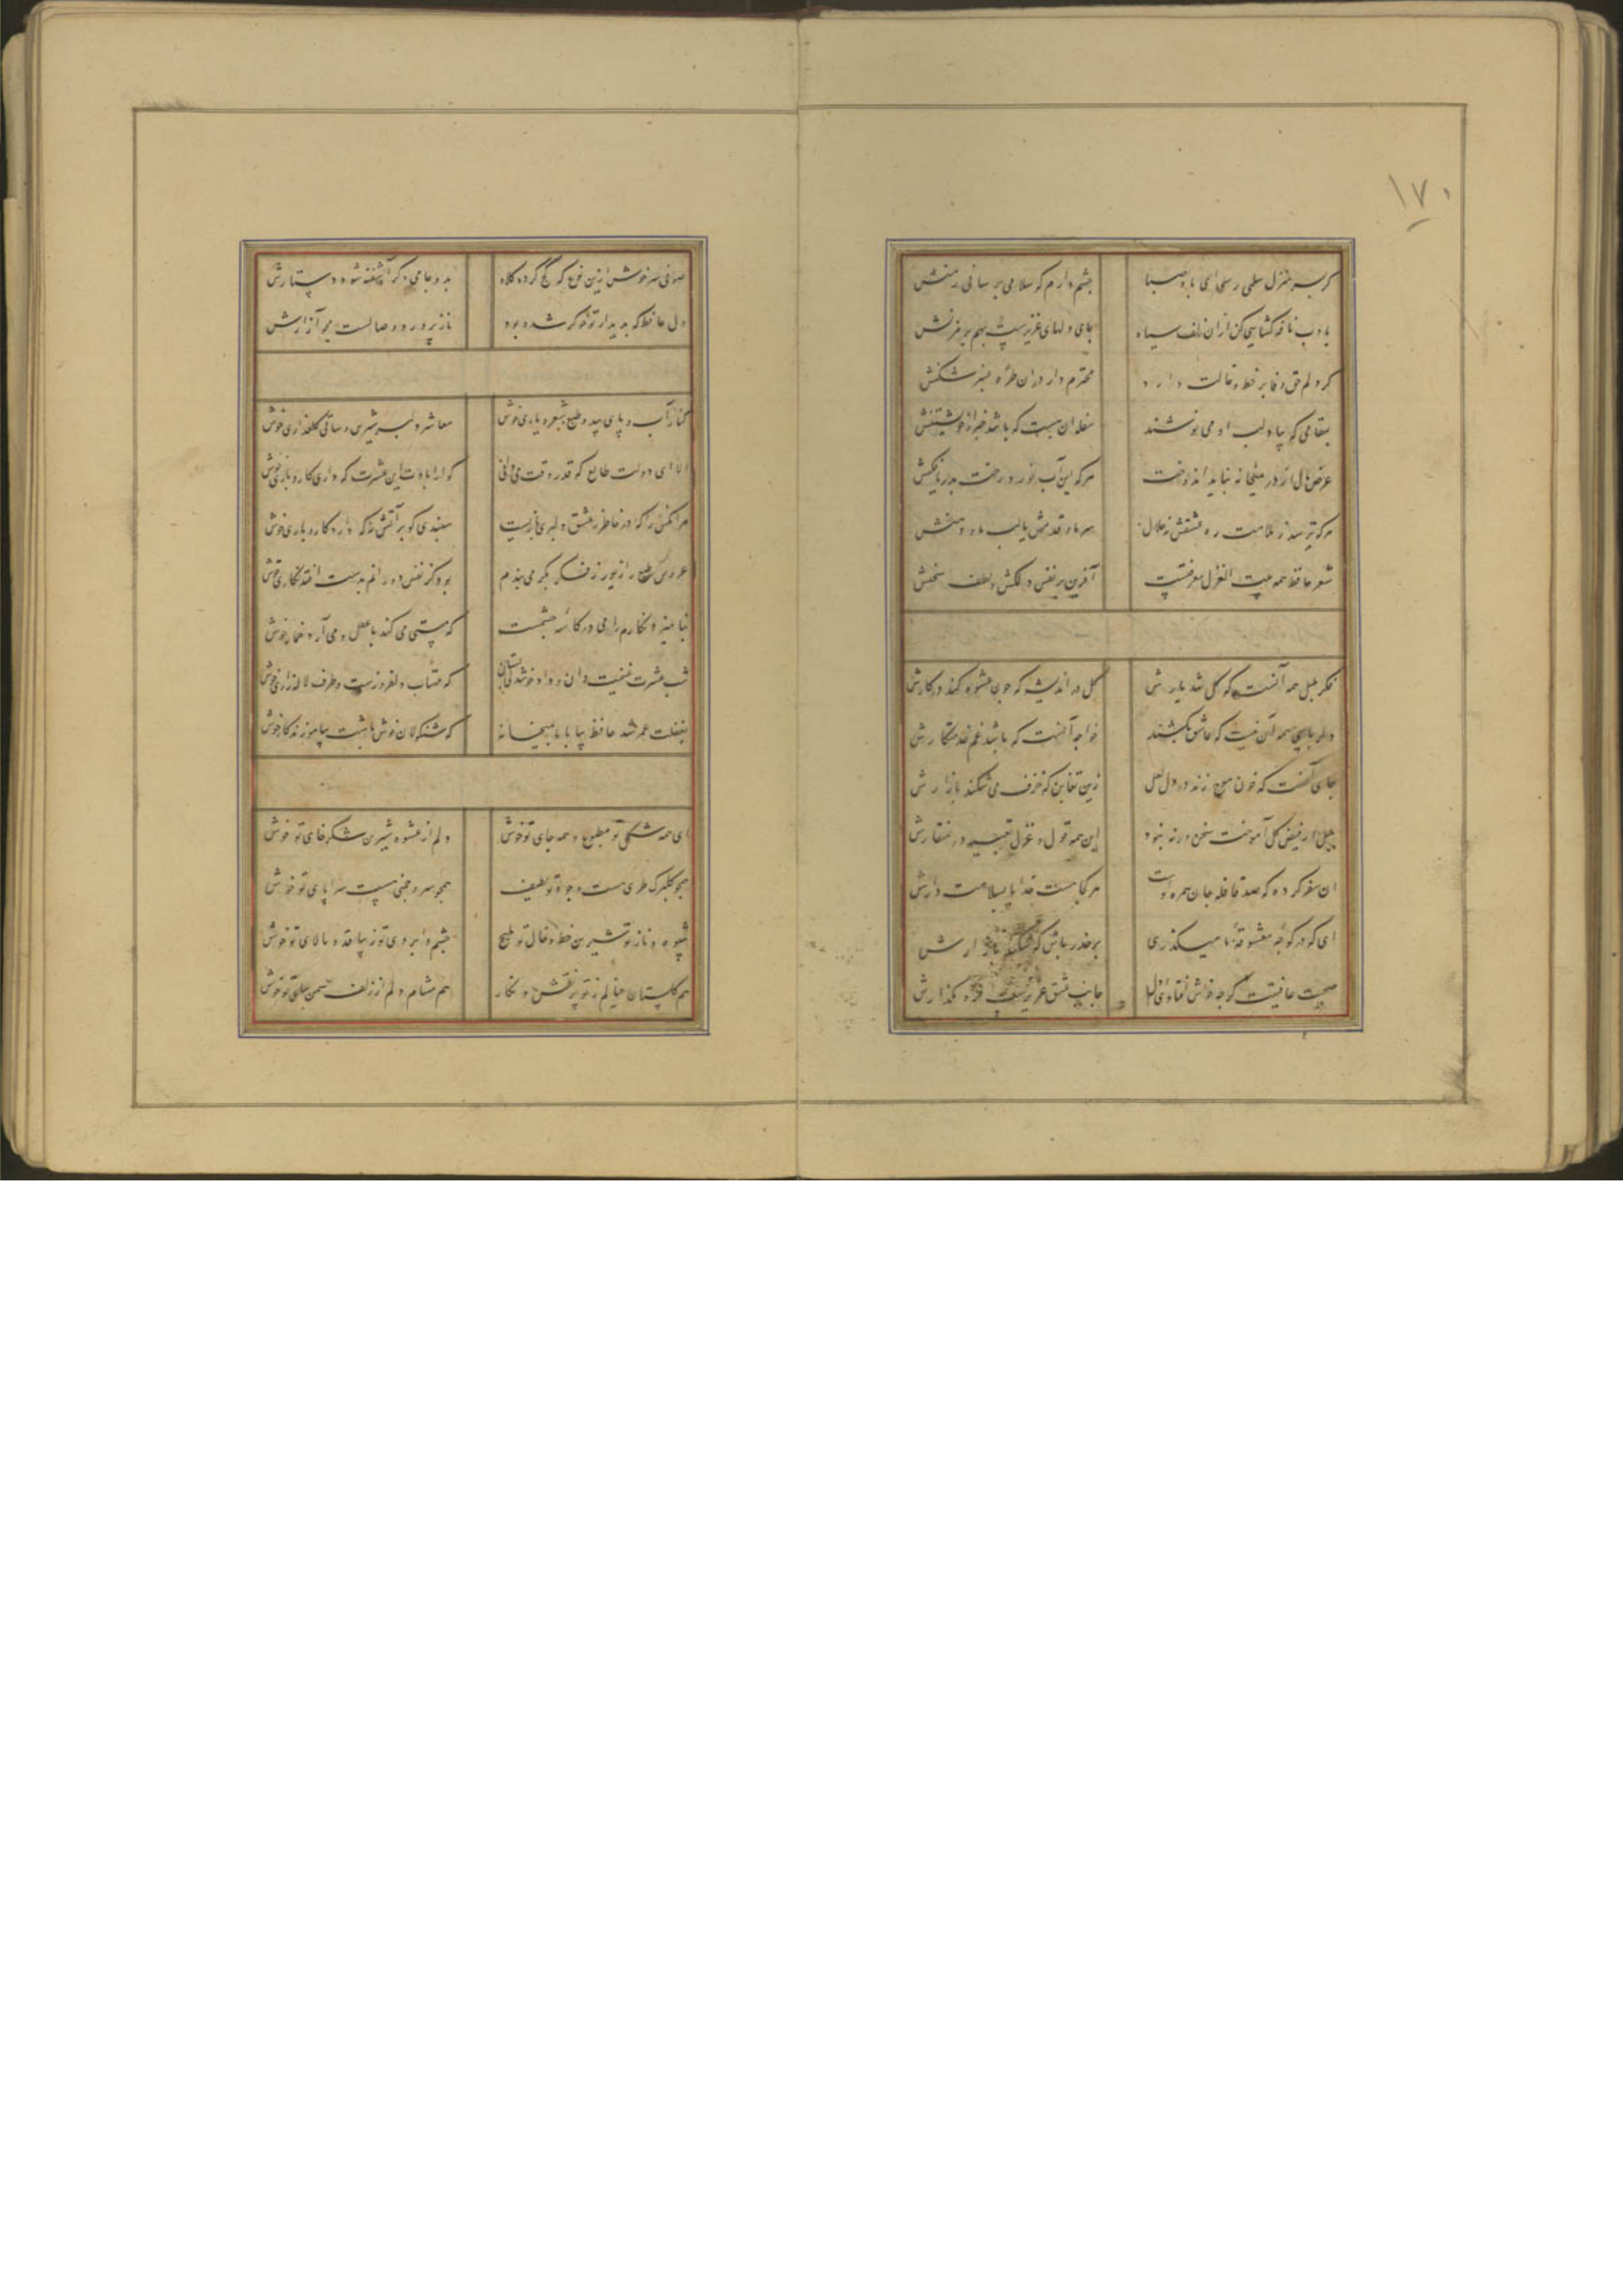 ۱۷۰
گر بسر منزل سلمی رسی ای باد صبا چشم دارم که سلامی برسانی ز منش
بادب نافه کشایی کن ازان زلف سیاه جای دلهای عزیزست بهم بر مزنش
کو دلم حق وفا بر خط و خالت دارد محترم دار دران طره عنبر شکنش
در مقامی که بیاد لب او می نوشند سفله آن مست که باشد خبر از خویشتنش
عرض و مال از در میخانه نباید اندوخت هر که این آب خورد رخت بدریا فکنش
هر که ترسد ز ملامت ره عشقش نه حلال سر ما و قدمش یا لب ما و دهنش
شعر حافظ همه بیت الغزل معرفتست آفرین بر نفس دلکش و لطف سخنش
فکر بلبل همه آنست که گل شد یارش گل در اندیشه که چون عشوه کند در کارش
دلربایی همه آن نیست که عاشق بکشند خواجه آنست که باشد غم خدمتکارش
جای آنست که خون موج زند در دل لعل زین تغابن که خزف می شکند بازارش
بلبل از فیض گل آموخت سخن ورنه نبود این همه قول و غزل تعبیه در منقارش
آن سفر کرده که صد قافله جان همره اوست هر کجا هست خدایا بسلامت دارش
ای که در کوچه معشوقه ما میگذری بر حذر باش که میشکند دیوارش
صحبت عافیتت گرچه خوش افتاد ای دل جانب عشق عزیزست فرو مگذارش
صوفی سرخوش ازین نوع که کج کرده کلاه بدو جام دگر آشفته شود دستارش
دل حافظ که بدیدار تو خوگر شده بود ناز پرورد وصالست مجو آزارش
کنار آب و پای بید و طبع شعر و یاری خوش معاشر دلبر شیرین و ساقی گلعذاری خوش
الا ای دولت طالع که قدر وقت می دانی گوارا بادت این عشرت که داری کار و باری خوش
هر آنکس را که در خاطر ز عشق دلبری باریست سپندی گو بر آتش نه که دارد کار و باری خوش
عروس طبع را زیور ز فکر بکر می بندم بود کز نقش دورانم بدست افتد نگاری خوش
نگارم را می در کاسه چشمست که مستی می کند با عقل و می آرد خماری خوش
شب عشرت غنیمت دان و داد خوشدلی بستان که مهتاب دلفروزست و طرف لاله زاری خوش
بغفلت عمر شد حافظ بیا با ما بمیخانه که شنگولان خوش باشت بیاموزند کاری خوش
ای همه شکل تو مطبوع و همه جای تو خوش دلم از عشوه شیرین شکر خای تو خوش
همچو گلبرگ طری هست وجود تو لطیف همچو سرو چمنی هست سراپای تو خوش
شیوه و ناز تو شیرین خط و خال تو ملیح چشم و ابروی تو زیبا قد و بالای تو خوش
هم گلستان خیالم ز تو پر نقش و نگار هم مشام دلم از زلف سمن سای تو خوش